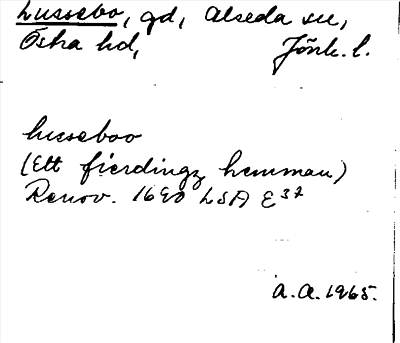 Lussebo, gd, Alseda sn,
Östra hd, Jönk. l.
Lusseboo
(Ett fierdingz hemman)
Renov. 1690 LSA E37
A.A. 1965.